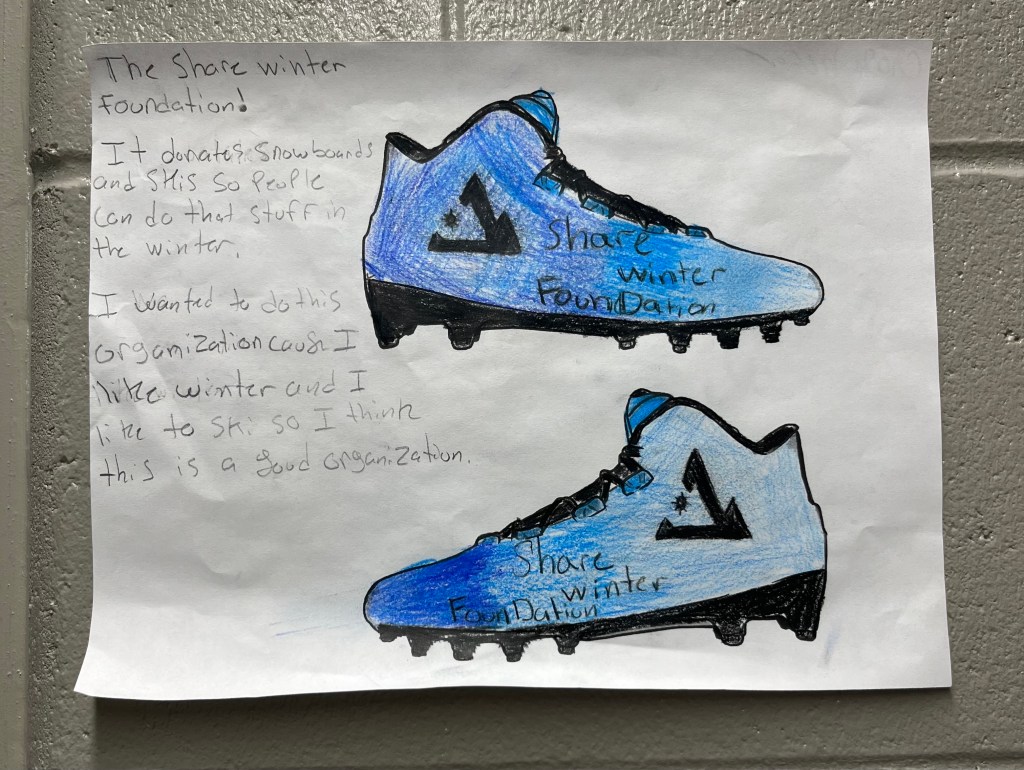 The Share winter
Foundation!
It donates snowboards
and skis so People
can do that stuff in
the winter.
I wanted to do this
organization cause I
like winter and I
like to ski so I think
this is a good organization.
Share
winter
FounDation
Share
winter
FounDation